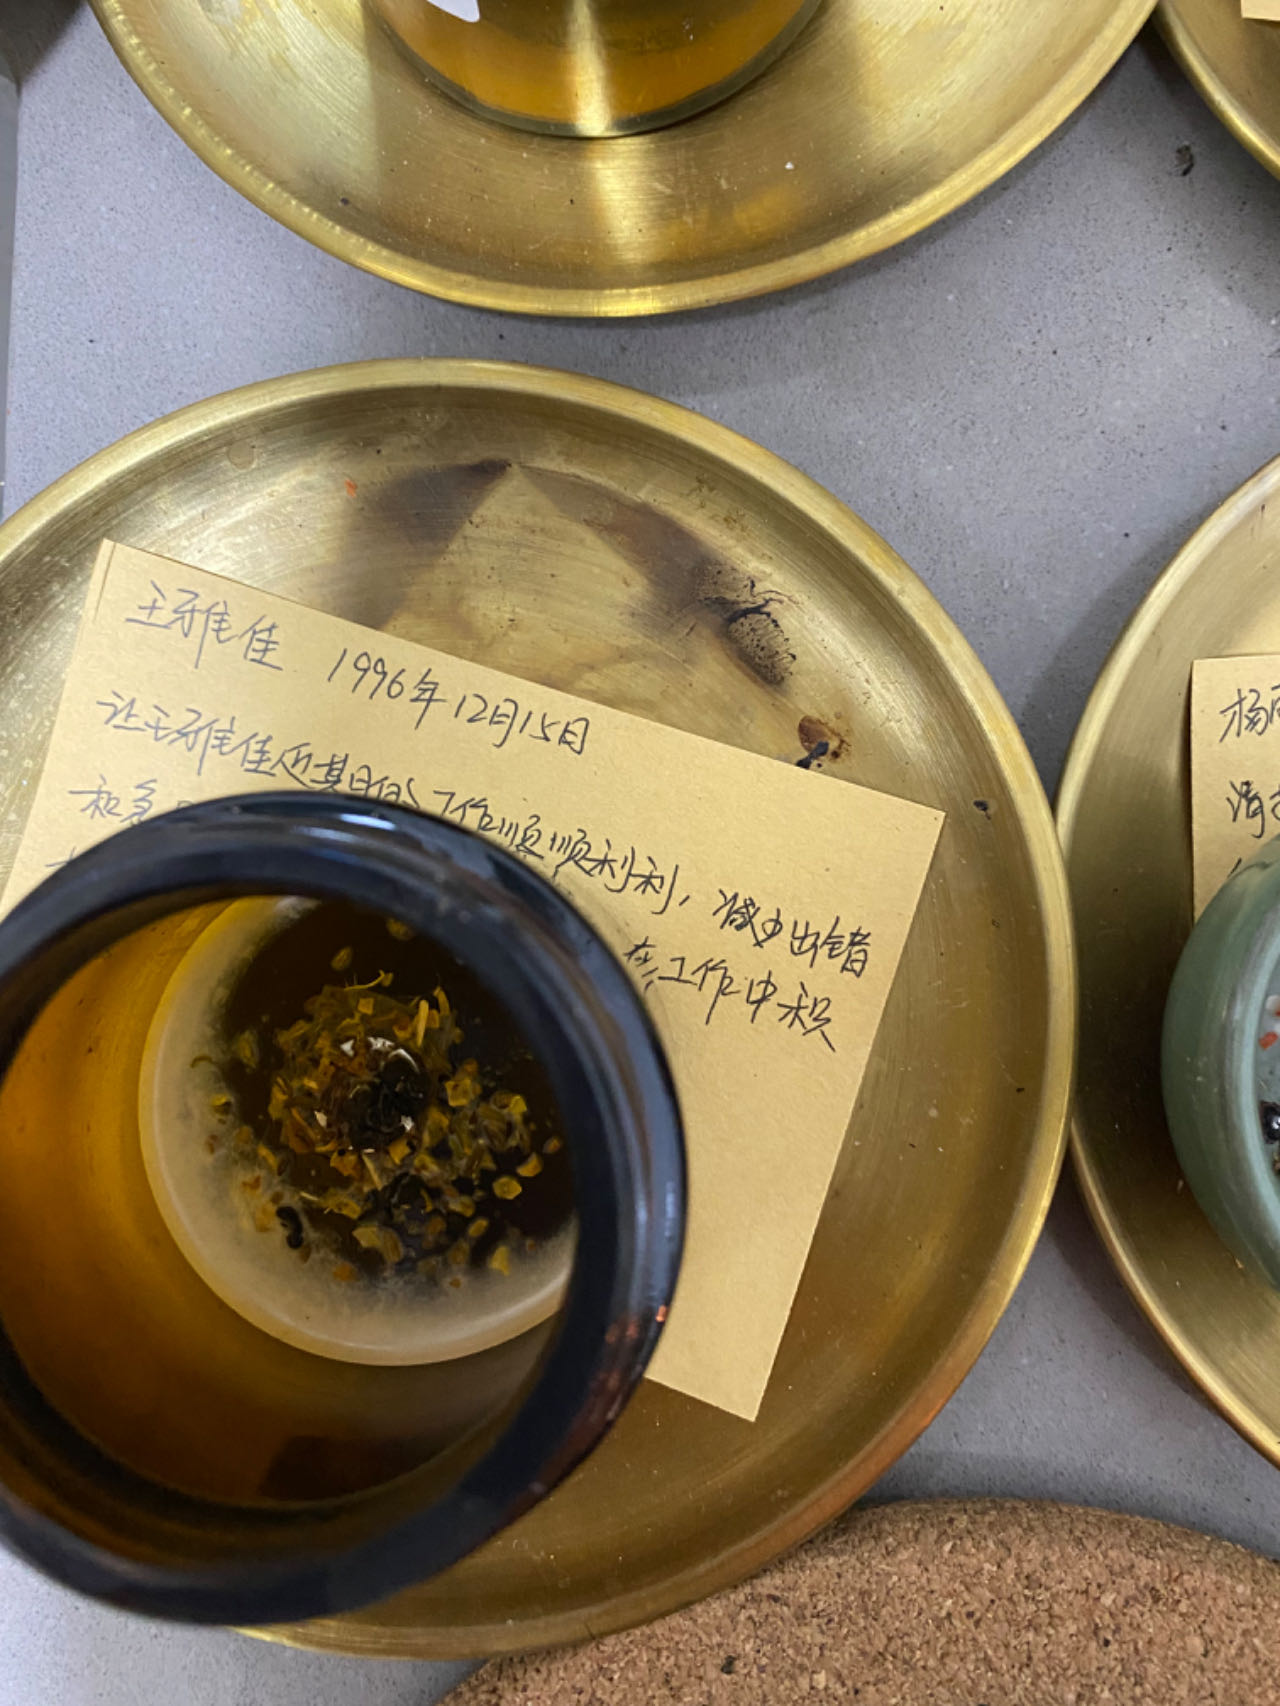 王雅佳 1996年12月15日
让王雅佳近其目的工作顺顺利利，减少出错
和
在工作中积
杨